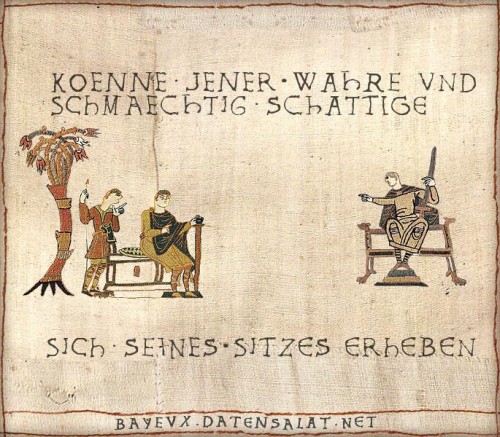 KOENNE · JENER · WAHRE VND
SCHMAECHTIG · SCHATTIGE
SICH · SEINES · SITZES ERHEBEN
BAYEVX.DATENSALAT.NET